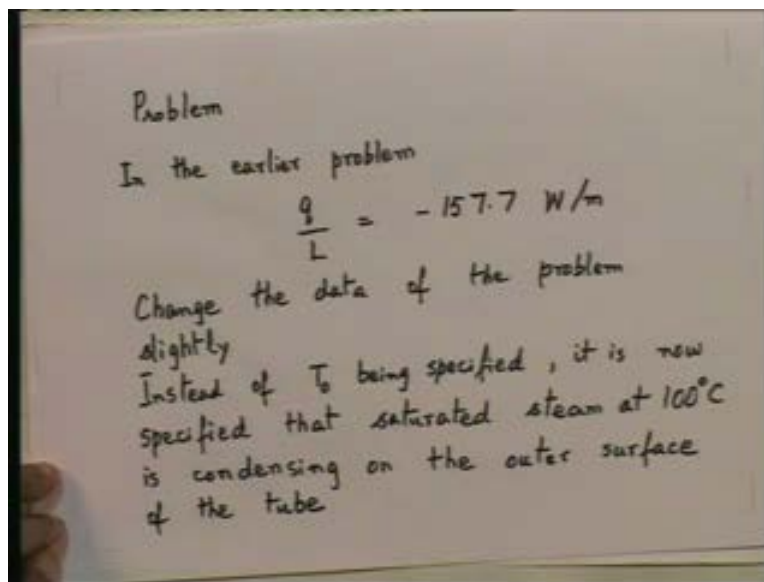 Problem
In the earlier problem
q
/
L = - 157.7 W/m
Change the data of the problem
slightly
Instead of To being specified, it is now
specified that saturated steam at 100°C
is condensing on the outer surface
of the tube